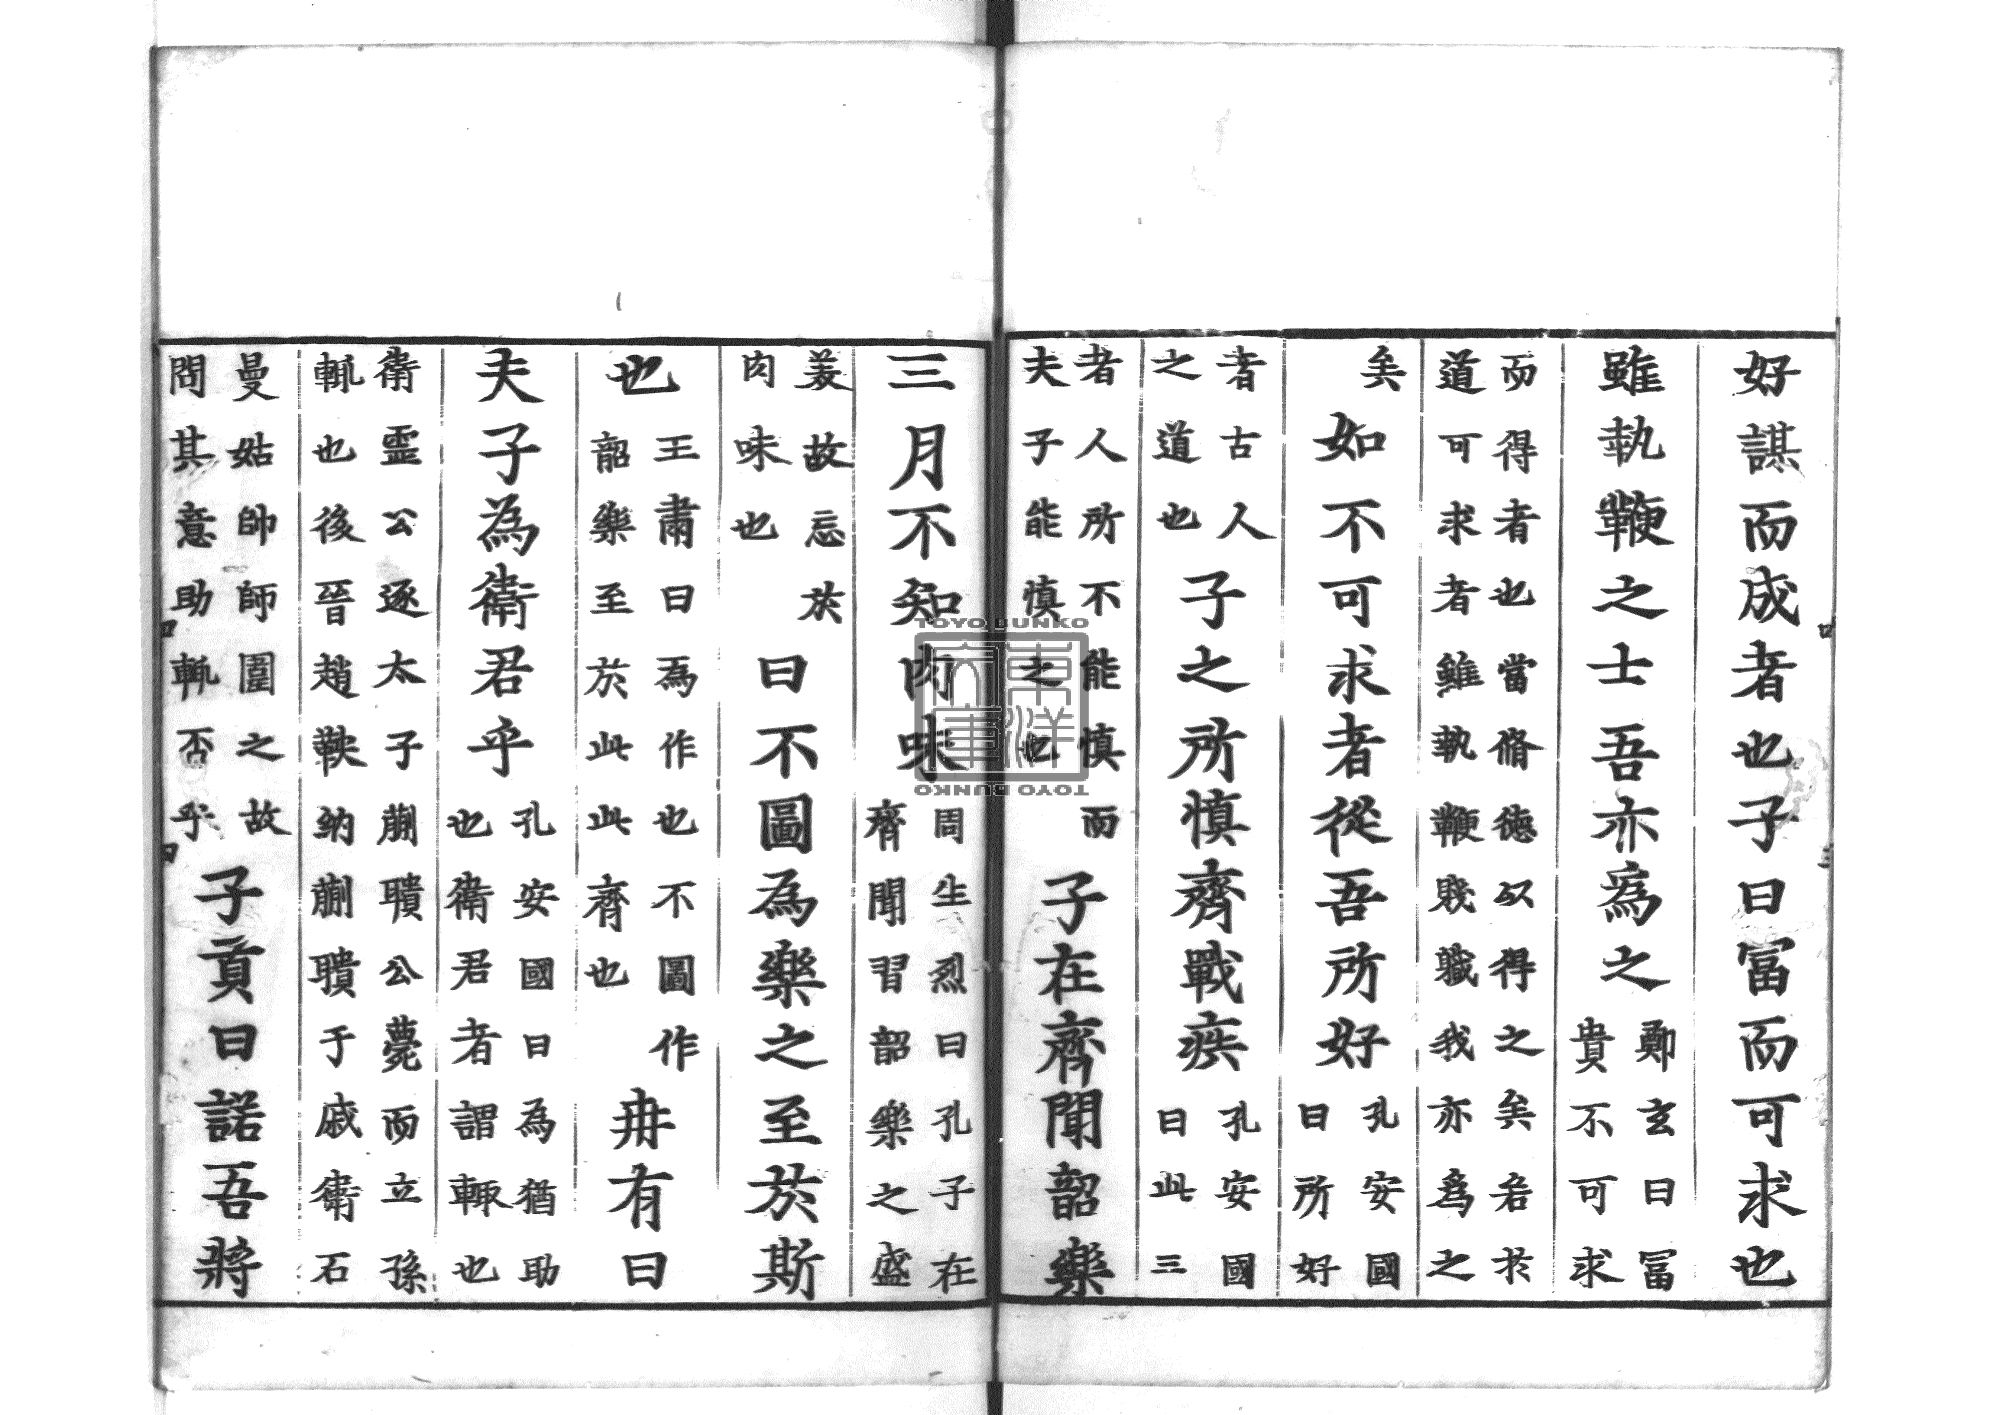 好謀而成者也子曰冨而可求也
雖執鞭之士吾亦爲之鄭玄曰冨貴不可求
而得者也當脩徳以得之矣若扵道可求者雖執鞭賤職我亦爲之
矣如不可求者從吾所好孔安國曰所好
者古人之道也子之所慎齊戰疾孔安國曰此三
者人所不能慎而夫子能慎之也子在齊聞韶樂
三月不知肉味周生烈曰孔子在齊聞習韶樂之盛
美故忘扵肉味也曰不圖為樂之至扵斯
也王肅曰為作也不圖作韶樂至扵此此齊也冉有曰
夫子為衛君乎孔安國曰為猶助也衛君者謂輒也
衛霊公逐太子蒯聵公薨而立孫輒也後晉趙鞅納蒯聵于戚衛石
曼姑帥師圍之故問其意助輒否乎子貢曰諾吾將
TOYO BUNKO
東洋文庫
TOYO BUNKO